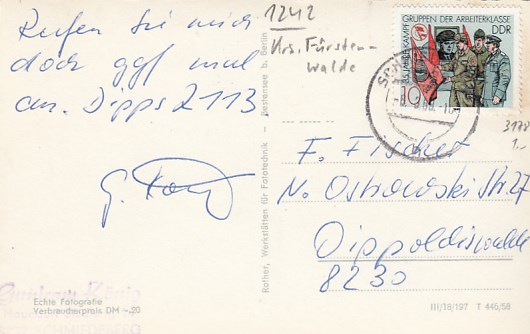 Rufen Sie mich
doch ggf mal
an. Dipps 2113
1242
Krs. Fürsten-
walde
GRUPPEN DER ARBEITERKLASSE
DDR
10
3178
1.-
F. Fischer
N. Ostrowski str. 27
Dippoldiswalde
8230
Rother, Werkstätten für Fototechnik – Bestensee b. Berlin
Echte Fotografie
Verbraucherpreis DM -.20
III/18/197 T 446/58